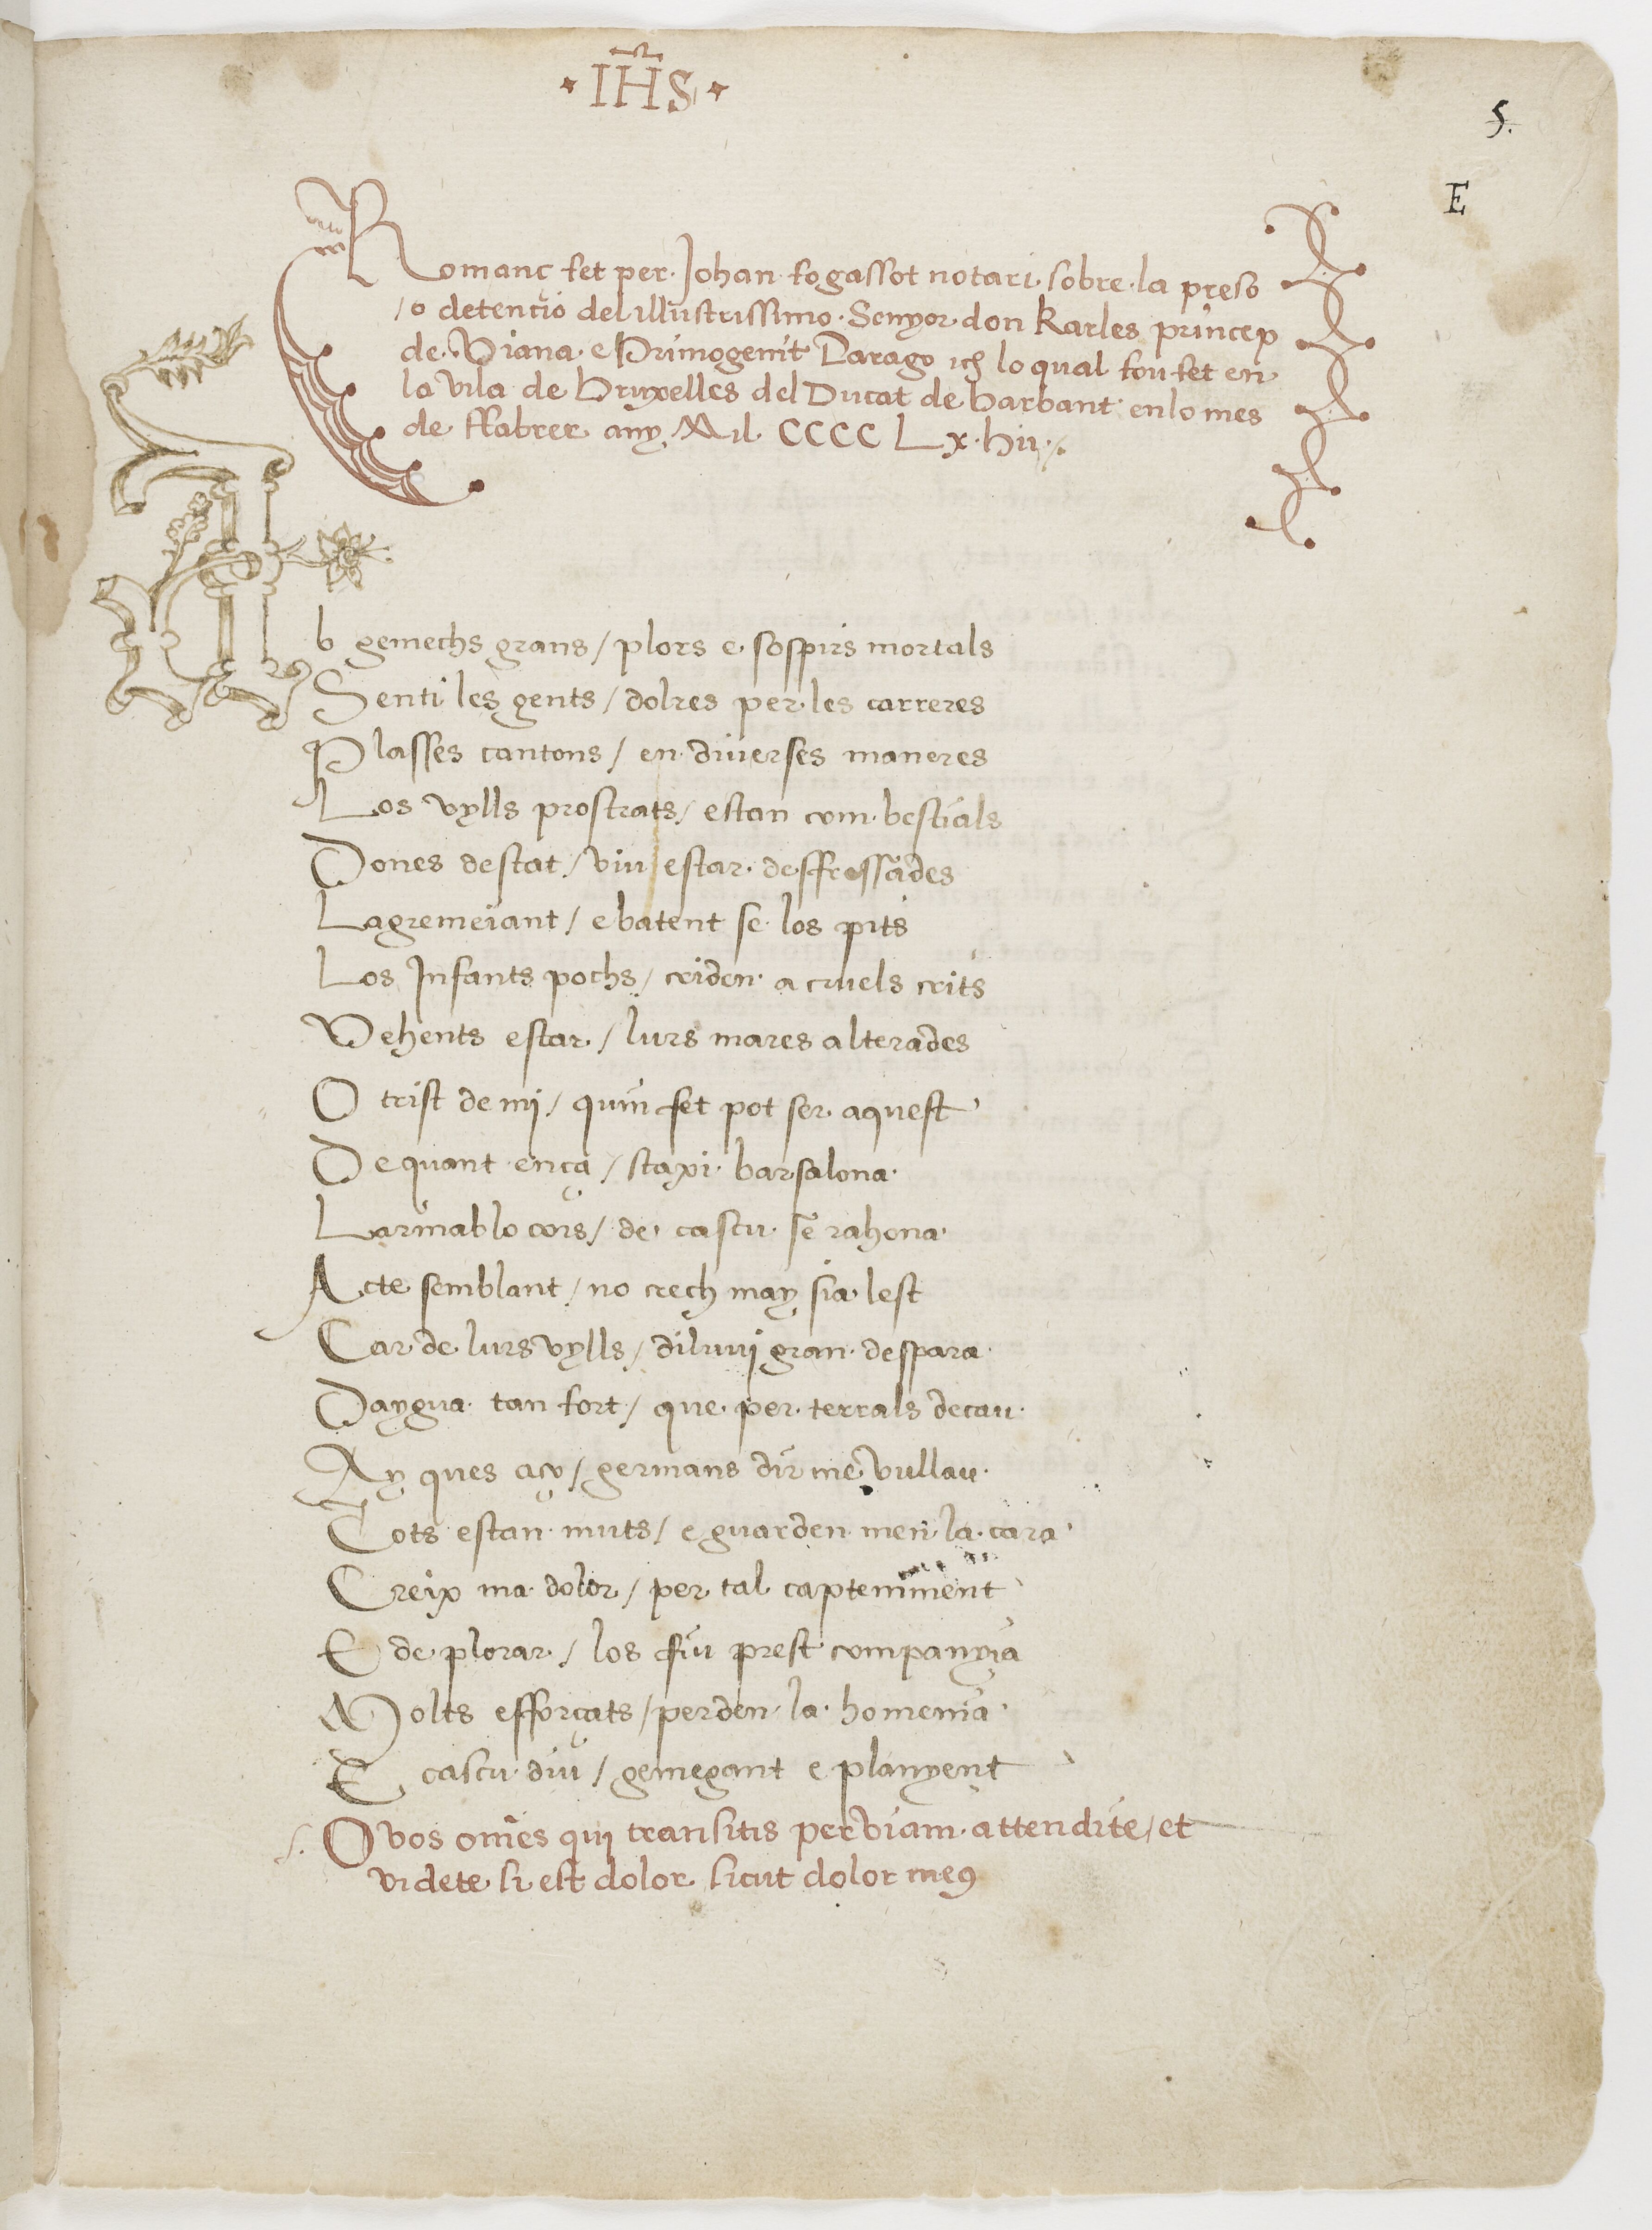 IHS
5.
E
Romanç fet per Johan fogassot notari sobre la preso
/o detencio del illustrissimo Senyor don Karles princep
de Viana e Primogenit Darago ⁊ch lo qual fou fet en
la vila de Bruxelles del Ducat de barbant en lo mes
de ffabrer any Mil CCCC Lx. hu
Ab gemechs grans / plors e sospirs mortals
Senti les gents / dolres per les carreres
Plasses cantons / en diverses maneres
Los vylls prostrats / estan com bestials
Dones destat / viu estar desfressades
Lagremeiant / e batent se los pits
Los Infants pochs / criden a cruels crits
Vehents estar / lurs mares alterades
O trist de mj / quin fet pot ser aquest
De quant ença / staxi barsalona
Larmab lo cors / de cascu se rahona
Acte semblant / no crech may sia lest
Car de lurs vylls / diluuj gran despara
Daygua tan fort / que per terrals decau
Ay ques aço / germans dir me vullau
Tots estan muts / e guarden men la cara
Creix ma dolor / per tal capteniment
E de plorar / los fiu prest companyia
Molts efforçats / perden la homenia
E cascu diu / gemegant e planyent
O vos om̃es quj transitis per viam attendite / et
videte si est dolor sicut dolor meꝰ